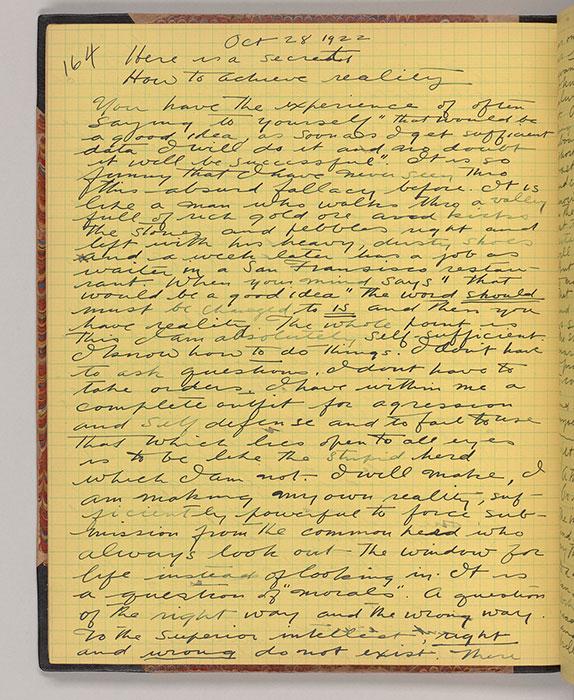 164
Oct 28 1922
Here is a secret
How to achieve reality
You have the experience of often
saying to yourself "that would be
a good idea, as soon as I get sufficient
data I will do it and no doubt
it will be successful". It is so
funny that I have never seen thro
this absurd fallacy before. It is
like a man who walks thro a valley
full of rich gold ore and kicks
the stones and pebbles right and
left with his heavy, dusty shoes
and a week later has a job as
waiter in a San Francisco restau-
rant. When your mind says "that
would be a good idea" the word should
must be changed to is and then you
have reality. The whole point is
this I am absolutely self sufficient.
I know how to do things. I dont have
to ask questions. I dont have to
take orders. I have within me a
complete outfit for agression
and self defense and to fail to use
that which lies open to all eyes
is to be like the stupid herd
which I am not. I will make, I
am making my own reality, suf-
ficiently powerful to force sub-
mission from the common herd who
always look out the window for
life instead of looking in. It is
a question of "morals". A question
of the right way and the wrong way.
To the superior intellect, right
and wrong do not exist. There